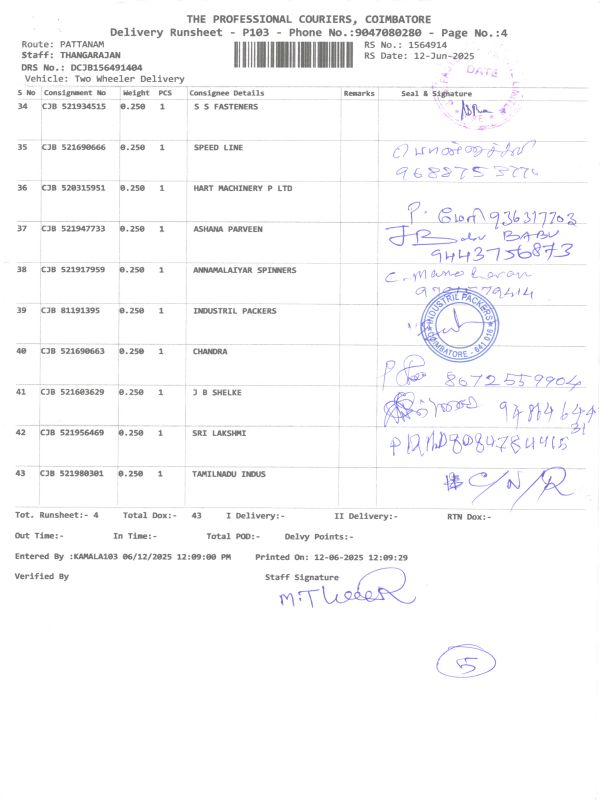 THE PROFESSIONAL COURIERS, COIMBATORE
Delivery Runsheet - P103 - Phone No.:9047080280 - Page No.:4
Route: PATTANAM RS No.: 1564914
Staff: THANGARAJAN RS Date: 12-Jun-2025
DRS No.: DCJB156491404
Vehicle: Two Wheeler Delivery
S No Consignment No Weight PCS Consignee Details Remarks Seal & Signature
DATE
34 CJB 521934515 0.250 1 S S FASTENERS
35 CJB 521690666 0.250 1 SPEED LINE
36 CJB 520315951 0.250 1 HART MACHINERY P LTD
P. 936317703
37 CJB 521947733 0.250 1 ASHANA PARVEEN
BABU
9443756873
38 CJB 521917959 0.250 1 ANNAMALAIYAR SPINNERS
C. Manoharan
39 CJB 81191395 0.250 1 INDUSTRIL PACKERS
INDUSTRIL PACKERS
COIMBATORE - 641 016
40 CJB 521690663 0.250 1 CHANDRA
8672559904
41 CJB 521603629 0.250 1 J B SHELKE
42 CJB 521956469 0.250 1 SRI LAKSHMI
43 CJB 521980301 0.250 1 TAMILNADU INDUS
C/N/R
Tot. Runsheet:- 4 Total Dox:- 43 I Delivery:- II Delivery:- RTN Dox:-
Out Time:- In Time:- Total POD:- Delvy Points:-
Entered By :KAMALA103 06/12/2025 12:09:00 PM Printed On: 12-06-2025 12:09:29
Verified By Staff Signature
5